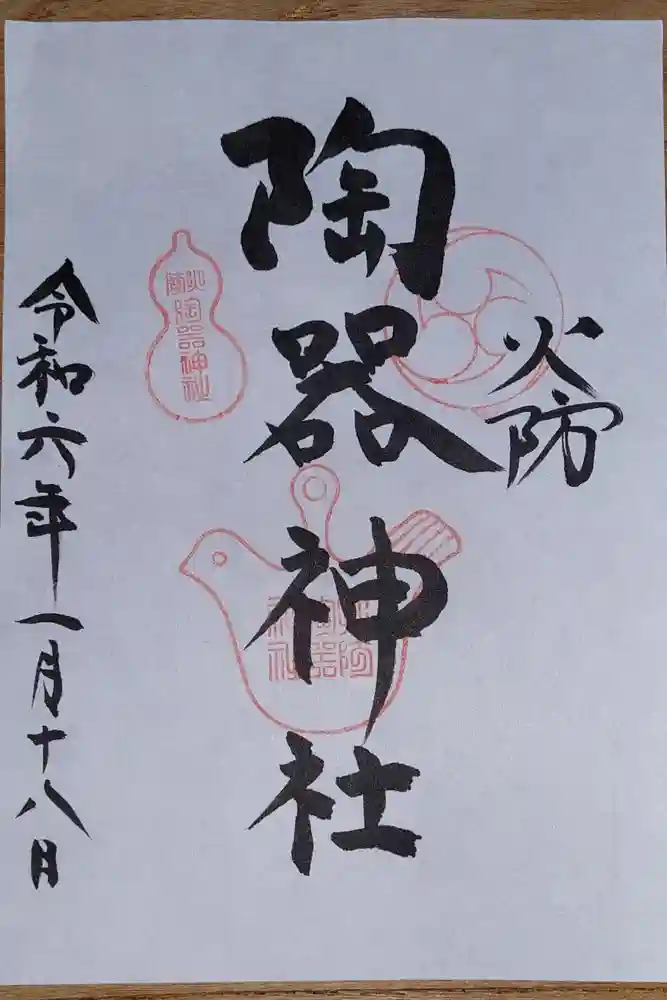 火防
陶器神社
火防
陶器神社
火防
陶器
神社
令和六年一月十八日